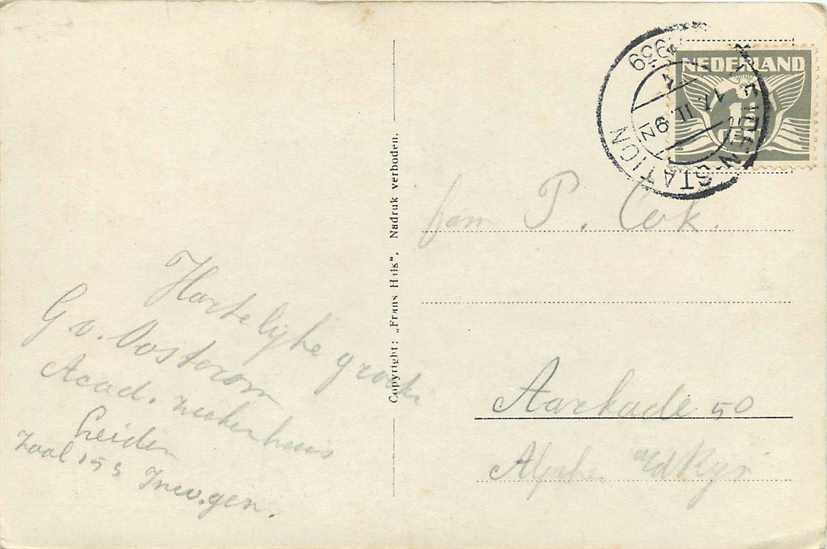 NEDERLAND
1939
LEIDEN-STATION
Hartelijke groeten
G v. Oosterom
Acad. ziekenhuis
Leiden
Zaal 153 Inw. gen.
Copyright: „Frans Hals". Nadruk verboden.
fam P. Cok.
Aarkade 50
Alphen a/d Rijn